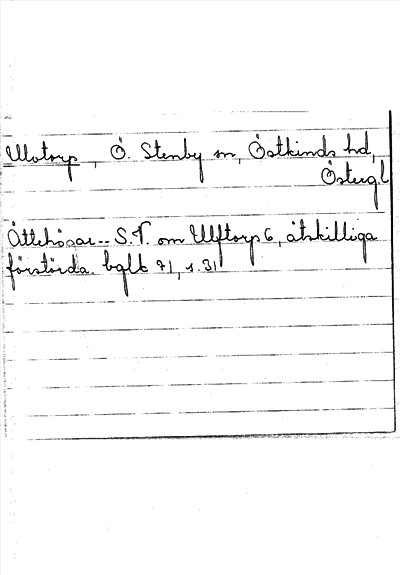 Ulvtorp, Ö. Stenby sn, Östkinds hd,
Östergl
Ättehögar.. S.V. om Ulftorp 6, åtskilliga
förstörda. bglb 71, s. 31